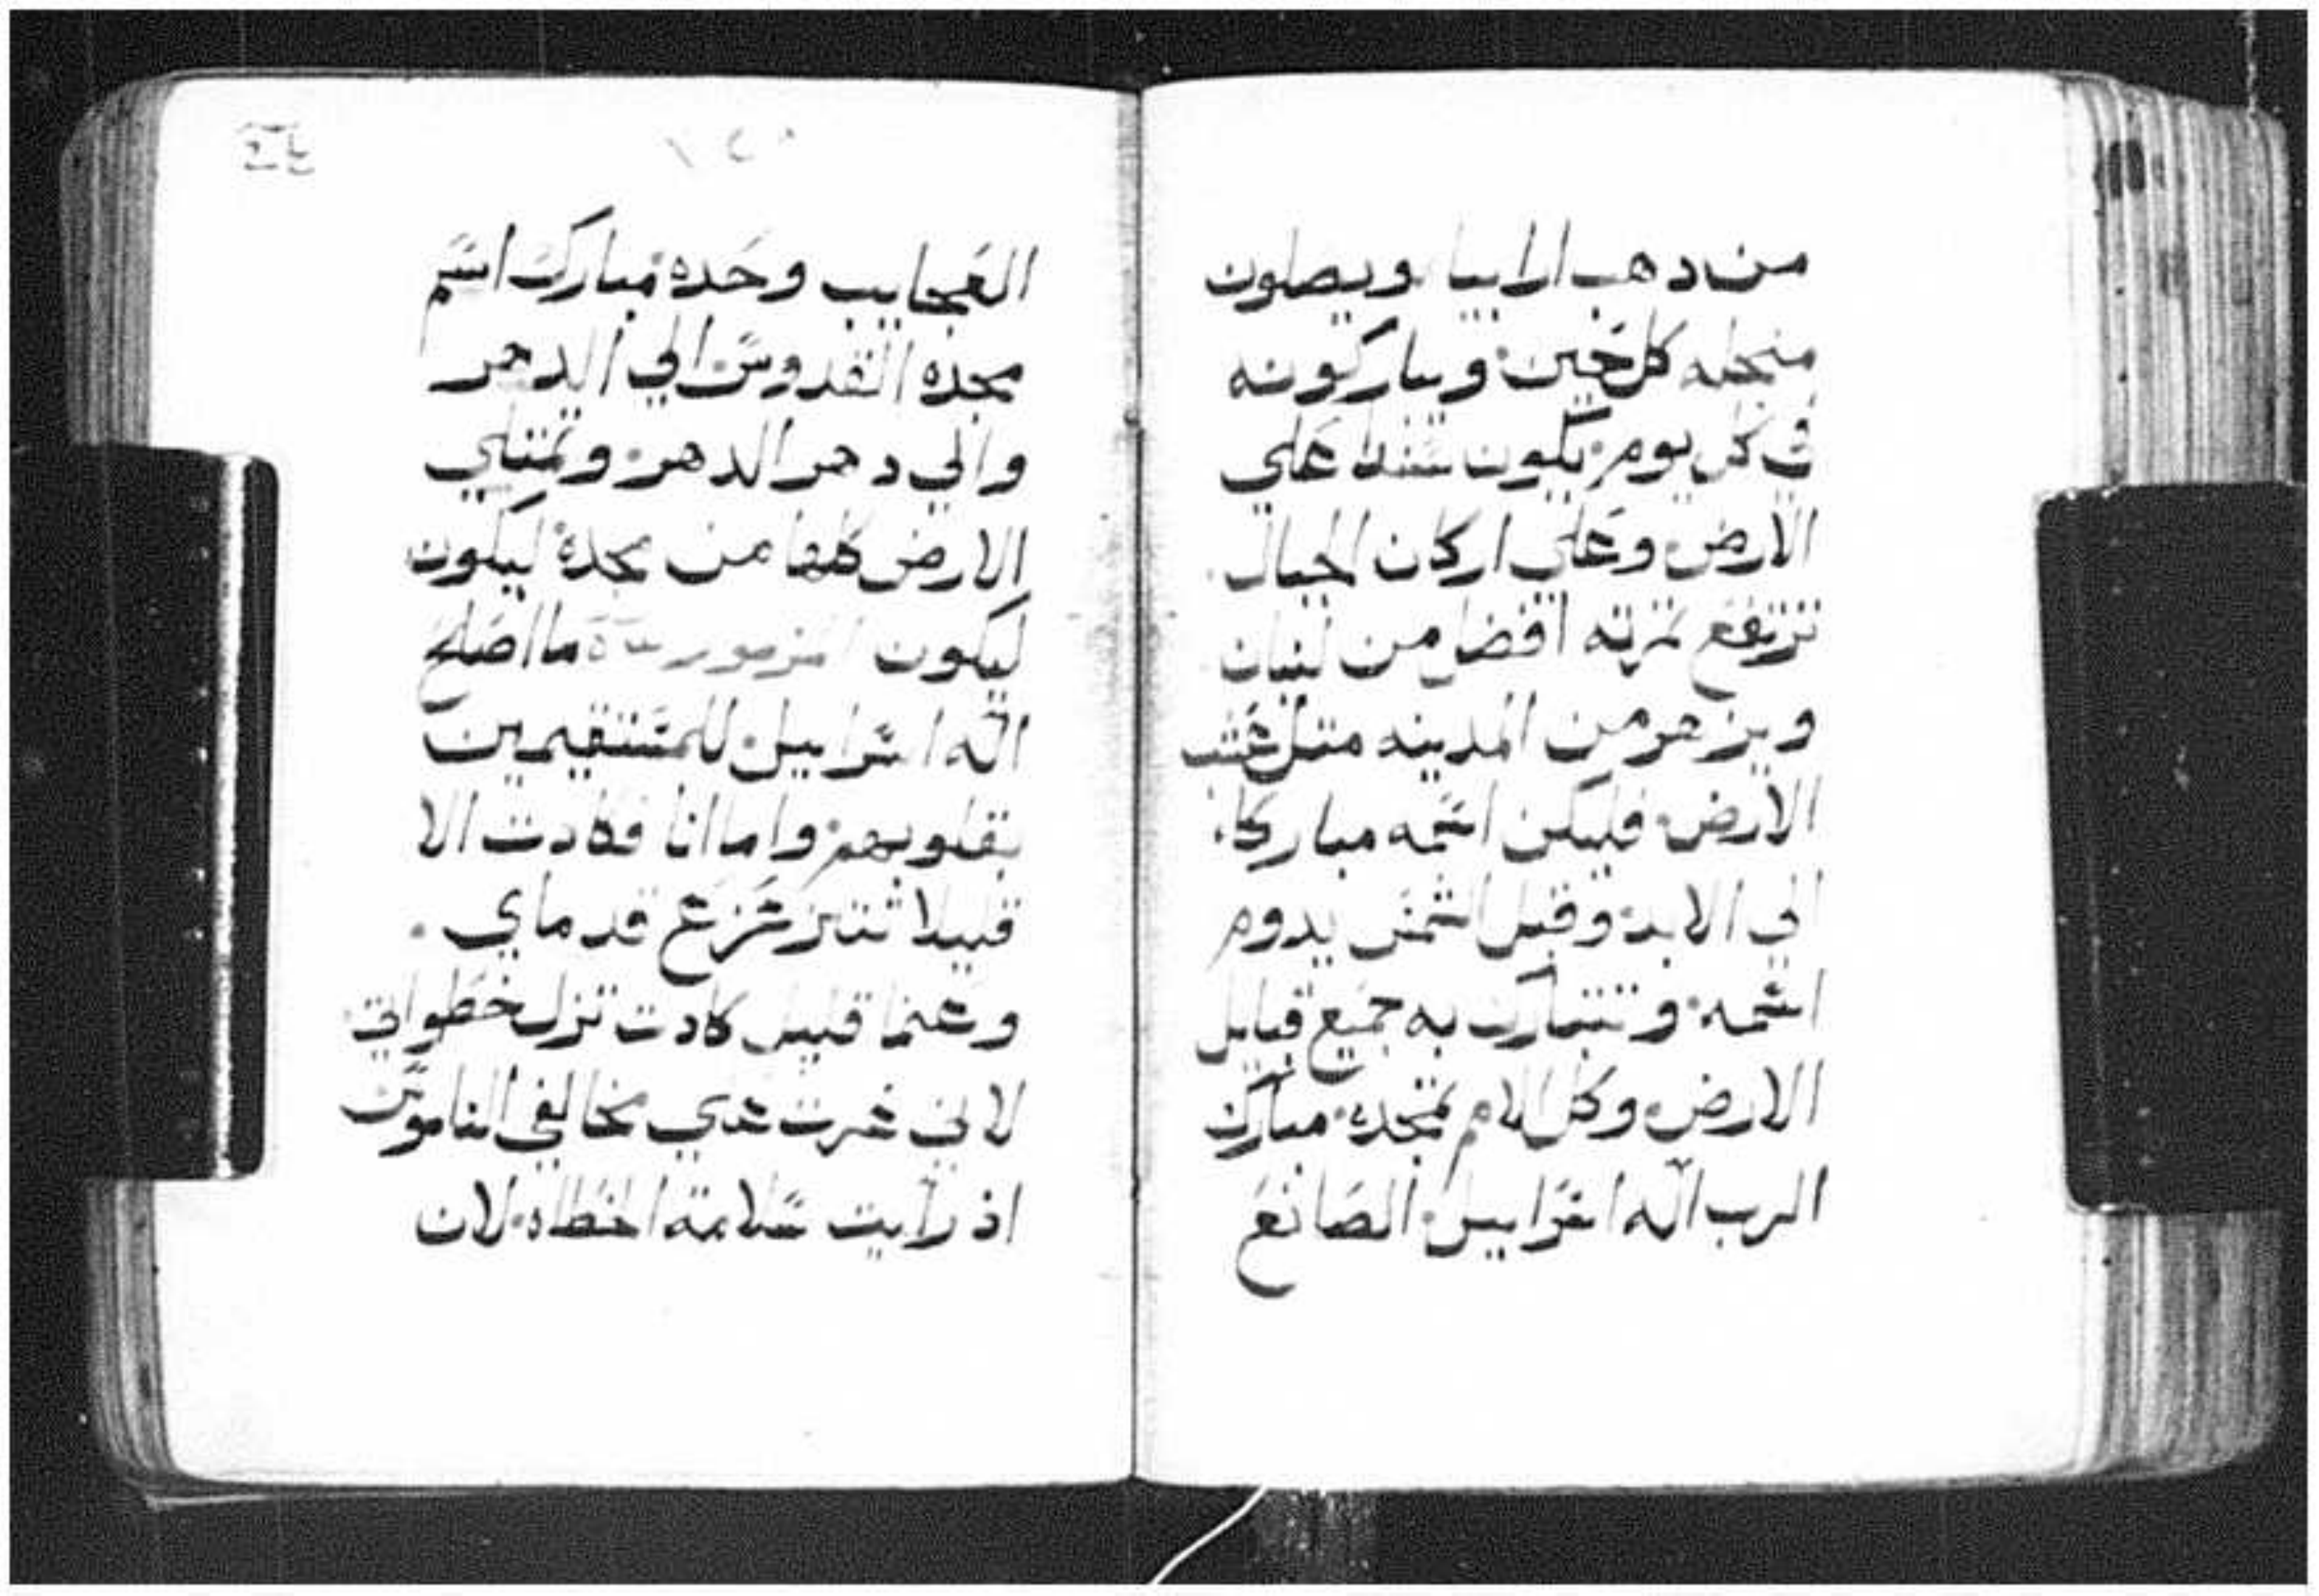 من دهب ارابيا ويصلون
منجله كل حين ويباركونه
في كل يوم يكون سندا علي
الارض وعلي اركان الجبال
ترتفع تمرته افضل من لبنان
ويزهر من المدينه متل عشب
الارض فليكن اسمه مباركا
الي الابد وقبل الشمس يدوم
اسمه وتتبارك به جميع قبايل
الارض وكل الامم تمجده مبارك
الرب اله اسراييل الصانع
العجايب وحده مبارك اسم
مجده القدوس الي الدهر
والي دهر الدهر وتمتلي
الارض كلها من مجده ليكون
ليكون المزمور ما اصلح
اله اسراييل للمستقيمين
بقلوبهم واما انا فكادت الا
قليلا تتزعزع قدماي
وعما قليل كادت تزل خطواتي
لاني غرت علي مخالفي الناموس
اذ رايت سلامة الخطاه لان